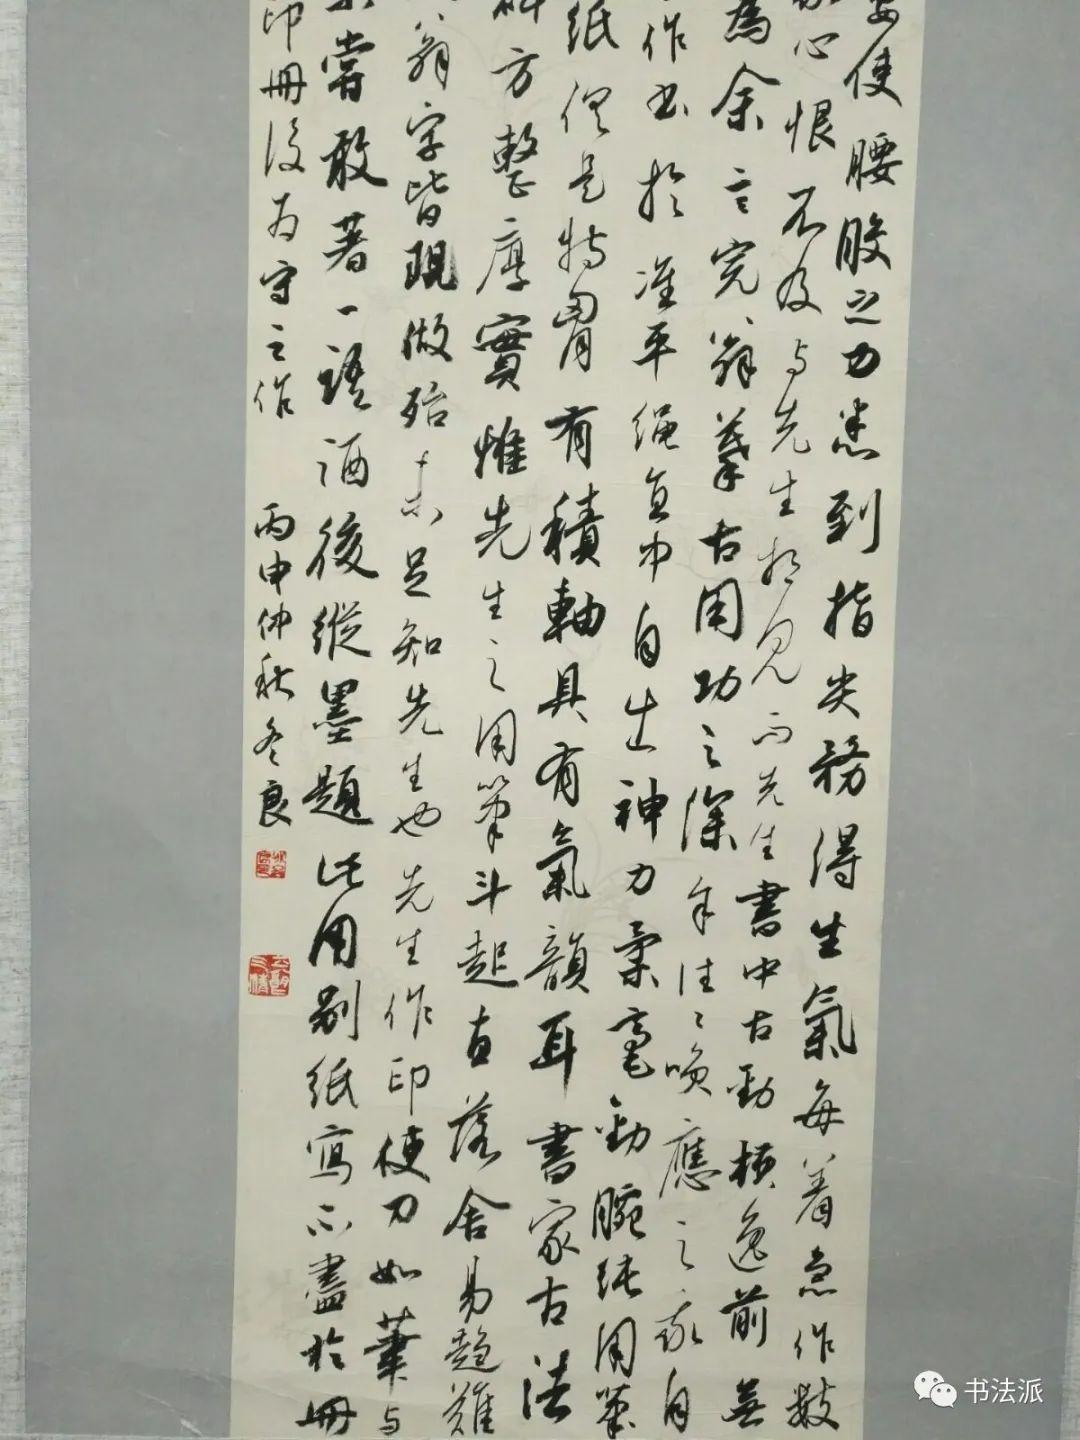 使腰股之力悉到指尖務得生氣每著急作數
心恨不及与先生相見而先生書中古勁横逸前無
為余言完翁摹古用功之深年往往喚應之家自
作書於准平繩直中自出神力柔毫勁腕純用筆
紙但是特胃有積軸具有氣韻耳書家古法
方整厚實惟先生之用筆斗起直落舍易趨難
翁字皆現做殆未足知先生也先生作印使刀如筆与
嘗敢著一語酒後縱墨題此用別紙寫不盡於冊
印冊後為守之作 丙申仲秋冬良
书法派